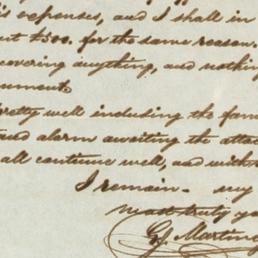 is expenses, and I shall in
nt $500. for the same reason.
covering anything, and nothing
ument
pretty well including the fam
and alarm awaiting the atta
all continue well, and with
I remain - my
most truly yo